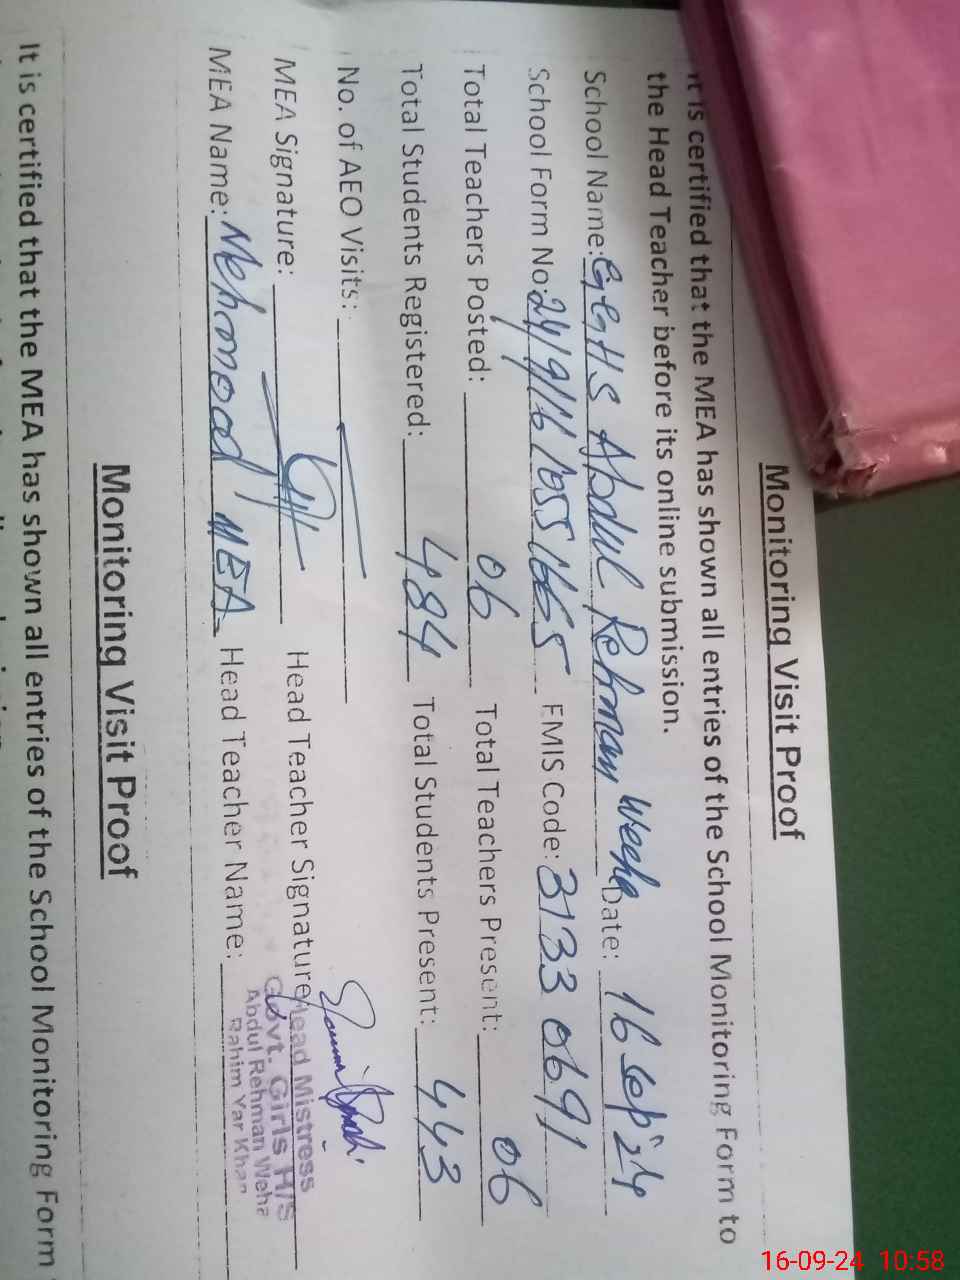 Monitoring Visit Proof
It is certified that the MEA has shown all entries of the School Monitoring Form to
the Head Teacher before its online submission.
School Name: GGHS Abdul Rehman Weha Date: 16 Sep 24
School Form No: 2491610551665 EMIS Code: 3133 0691
Total Teachers Posted: 06 Total Teachers Present: 06
Total Students Registered: 484 Total Students Present: 443
No. of AEO Visits:
MEA Signature: Head Teacher Signature
Head Mistress
Govt. Girls H/S
Abdul Rehman Weha
Rahim Yar Khan
MEA Name: Mehmood MEA Head Teacher Name:
Monitoring Visit Proof
It is certified that the MEA has shown all entries of the School Monitoring Form
16-09-24 10:58